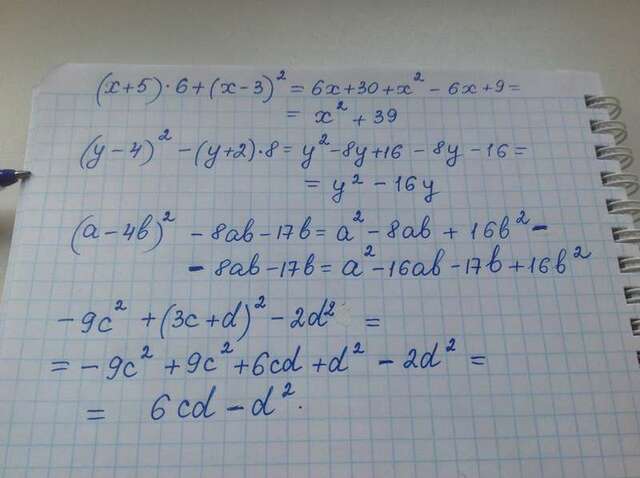 (x+5)·6+(x-3)² = 6x+30+x² - 6x+9=
= x² + 39
(y-4)² -(y+2)·8 = y²-8y+16 - 8y -16=
= y² - 16y
(a-4b)² -8ab-17b= a² - 8ab + 16b² -
- 8ab-17b= a²-16ab-17b+16b²
-9c² +(3c+d)² -2d² =
= -9c² +9c²+6cd+d² - 2d² =
= 6cd-d².